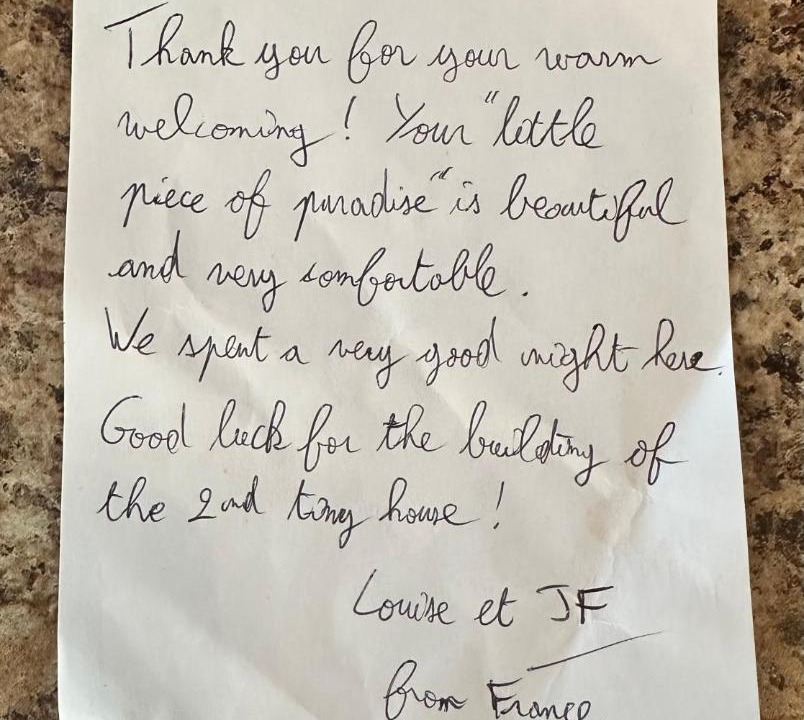 Thank you for your warm
welcoming! Your "little
piece of paradise" is beautiful
and very comfortable.
We spent a very good night here.
Good luck for the building of
the 2nd tiny house!
Louise et JF
from France